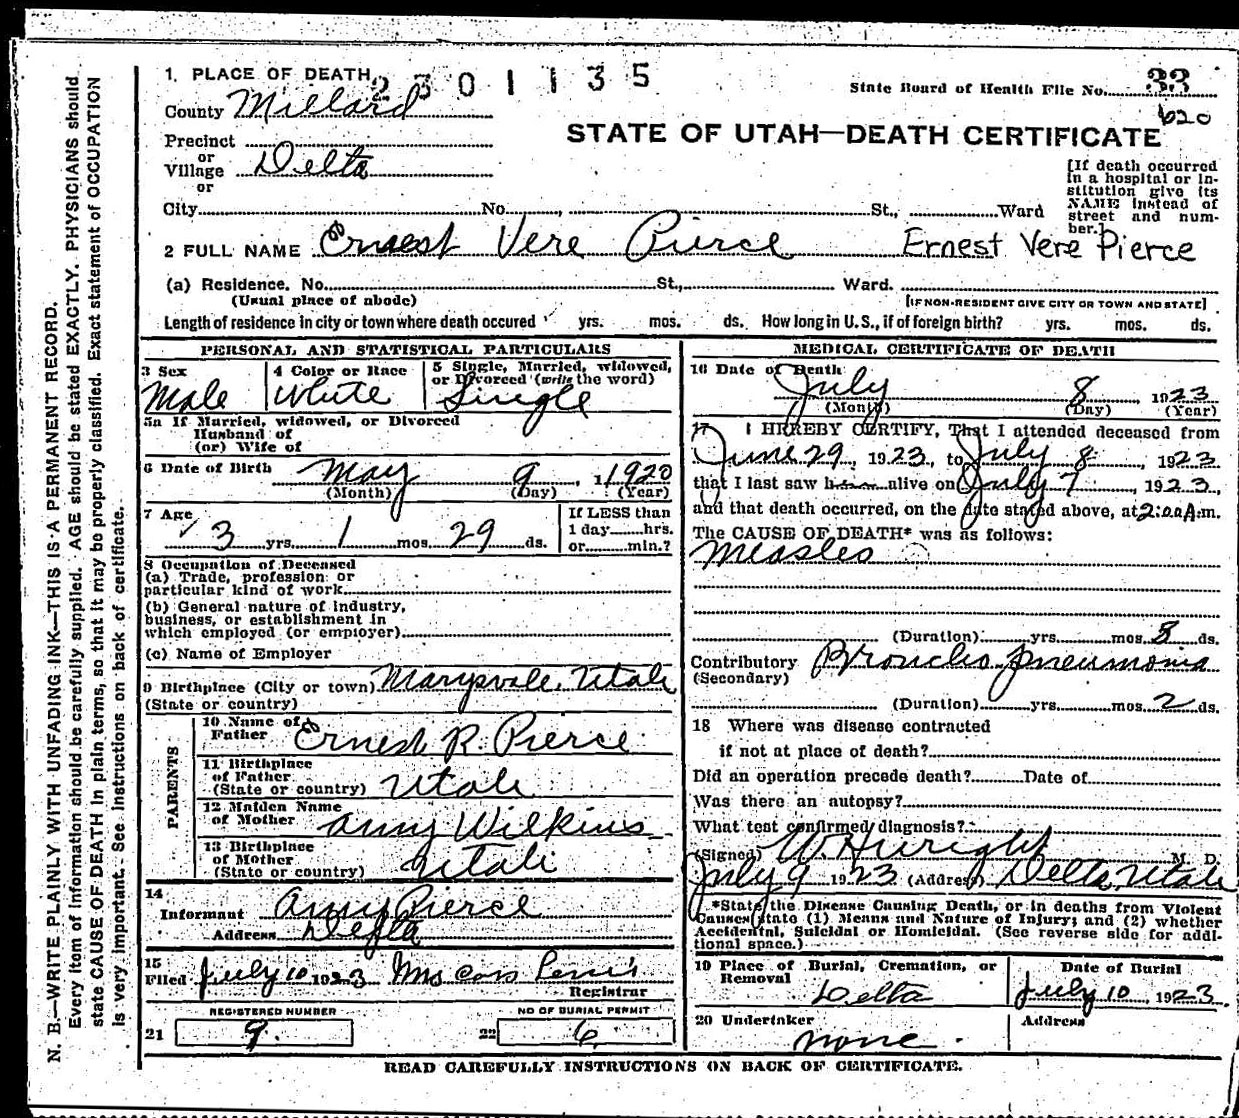 1. PLACE OF DEATH 2301135
County Millard
State Board of Health File No. 33
620
STATE OF UTAH—DEATH CERTIFICATE
Precinct
or
Village Delta
or
City No. , St., Ward
[If death occurred in a hospital or institution give its NAME instead of street and number.]
2 FULL NAME Ernest Vere Pierce Ernest Vere Pierce
(a) Residence. No. St., Ward.
(Usual place of abode) [IF NON-RESIDENT GIVE CITY OR TOWN AND STATE]
Length of residence in city or town where death occured yrs. mos. ds. How long in U. S., if of foreign birth? yrs. mos. ds.
N. B.—WRITE PLAINLY WITH UNFADING INK—THIS IS A PERMANENT RECORD.
Every item of information should be carefully supplied. AGE should be stated EXACTLY. PHYSICIANS should
state CAUSE OF DEATH in plain terms, so that it may be properly classified. Exact statement of OCCUPATION
is very important. See instructions on back of certificate.
PERSONAL AND STATISTICAL PARTICULARS
3 Sex
Male
4 Color or Race
White
5 Single, Married, widowed,
or Divorced (write the word)
Single
5a If Married, widowed, or Divorced
Husband of
(or) Wife of
6 Date of Birth May 9, 1920
(Month) (Day) (Year)
7 Age
3 yrs. 1 mos. 29 ds.
If LESS than
1 day hrs.
or min.?
8 Occupation of Deceased
(a) Trade, profession or
particular kind of work
(b) General nature of industry,
business, or establishment in
which employed (or employer)
(c) Name of Employer
9 Birthplace (City or town) Marysvale, Utah
(State or country)
PARENTS
10 Name of
Father Ernest R. Pierce
11 Birthplace
of Father
(State or country) Utah
12 Maiden Name
of Mother Amy Wilkins
13 Birthplace
of Mother
(State or country) Utah
14
Informant Amy Pierce
Address Delta
15
Filed July 10 1923 Mrs
Registrar
REGISTERED NUMBER
21 9
NO OF BURIAL PERMIT
22 6
MEDICAL CERTIFICATE OF DEATH
16 Date of Death
July 8, 1923
(Month) (Day) (Year)
17 I HEREBY CERTIFY, That I attended deceased from
June 29, 1923, to July 8, 1923
that I last saw h alive on July 7, 1923,
and that death occurred, on the date stated above, at 2:00 A.m.
The CAUSE OF DEATH* was as follows:
Measles
(Duration) yrs. mos. 8 ds.
Contributory Broncho pneumonia
(Secondary)
(Duration) yrs. mos. 2 ds.
18 Where was disease contracted
if not at place of death?
Did an operation precede death? Date of
Was there an autopsy?
What test confirmed diagnosis?
(Signed) W. H. Wright M. D.
July 9 1923 (Address) Delta, Utah
*State the Disease Causing Death, or in deaths from Violent
Causes state (1) Means and Nature of Injury; and (2) whether
Accidental, Suicidal or Homicidal. (See reverse side for addi-
tional space.)
19 Place of Burial, Cremation, or
Removal
Delta
Date of Burial
July 10, 1923
20 Undertaker
none
Address
READ CAREFULLY INSTRUCTIONS ON BACK OF CERTIFICATE.